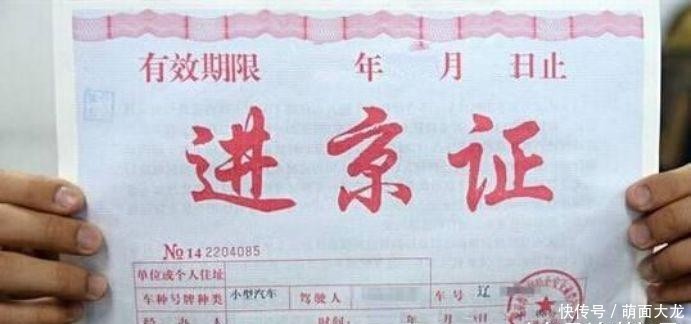 有效期限 年 月 日止
进京证
No 14 2204085
单位或个人住址
车种号牌种类 小型汽车 驾驶人 车号 辽
经办人 时间: 年 月
快传号/萌面大龙